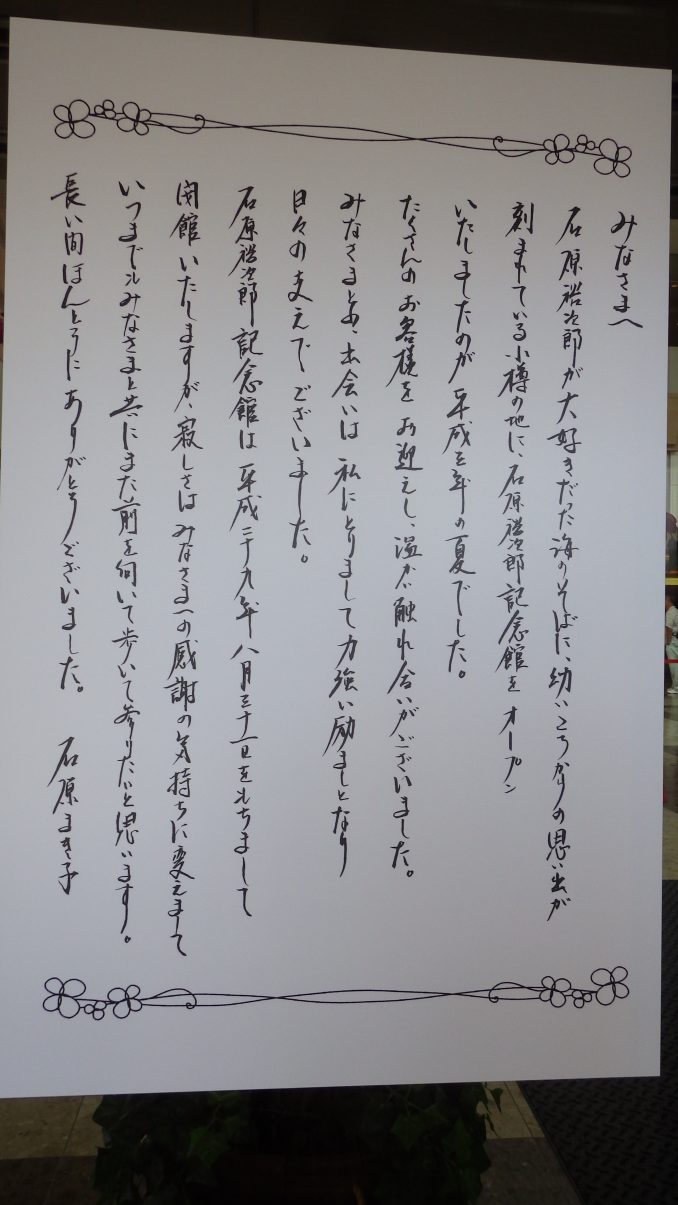 みなさまへ
石原裕次郎が大好きだった海のそばに、幼いころからの思い出が
刻まれている小樽の地に、石原裕次郎記念館をオープン
いたしましたのが平成三年の夏でした。
たくさんのお客様をお迎えし、温かい触れ合いがございました。
みなさまとの出会いは私にとりまして力強い励ましとなり
日々の支えでございました。
石原裕次郎記念館は平成二十九年八月三十一日をもちまして
閉館いたしますが、寂しさはみなさまへの感謝の気持ちに変えまして
いつまでもみなさまと共にまた前を向いて歩いて参りたいと思います。
長い間ほんとうにありがとうございました。 石原まき子